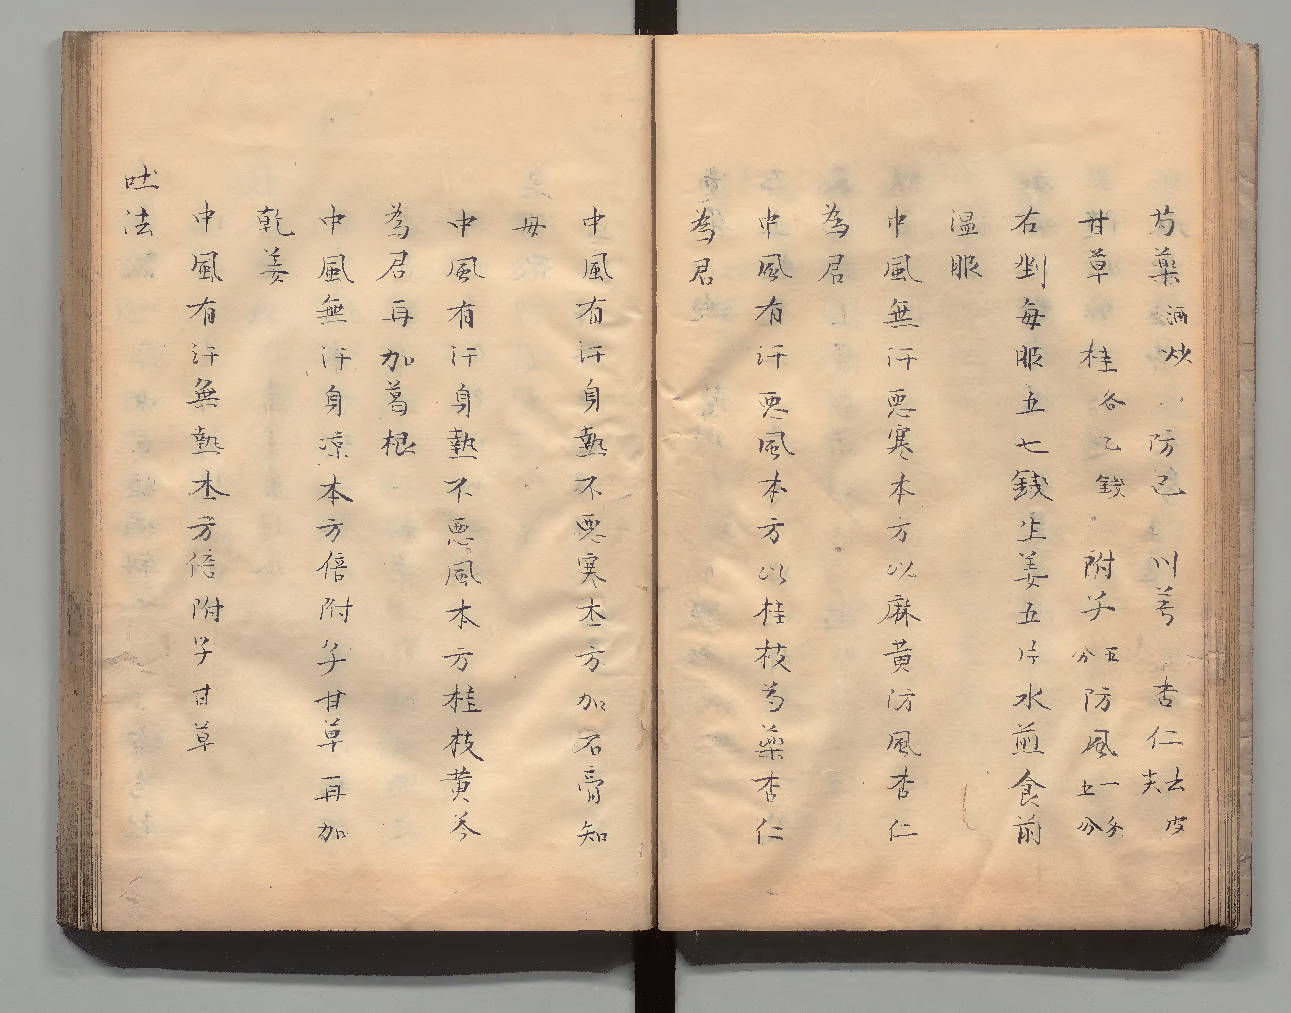 芍藥酒炒 防己 川芎 杏仁去皮尖
甘草 桂各乙錢 附子五分 防風一錢五分
右剉每服五七錢生姜五片水煎食前
溫服
中風無汗悪寒本方以麻黄防風杏仁
為君
中風有汗悪風本方以桂枝芍藥杏仁
為君
中風有汗身熱不悪寒本方加石膏知
母
中風有汗身熱不悪風本方桂枝黄芩
為君再加葛根
中風無汗身凉本方倍附子甘草再加
乾姜
中風有汗無熱本方倍附子甘草
吐法